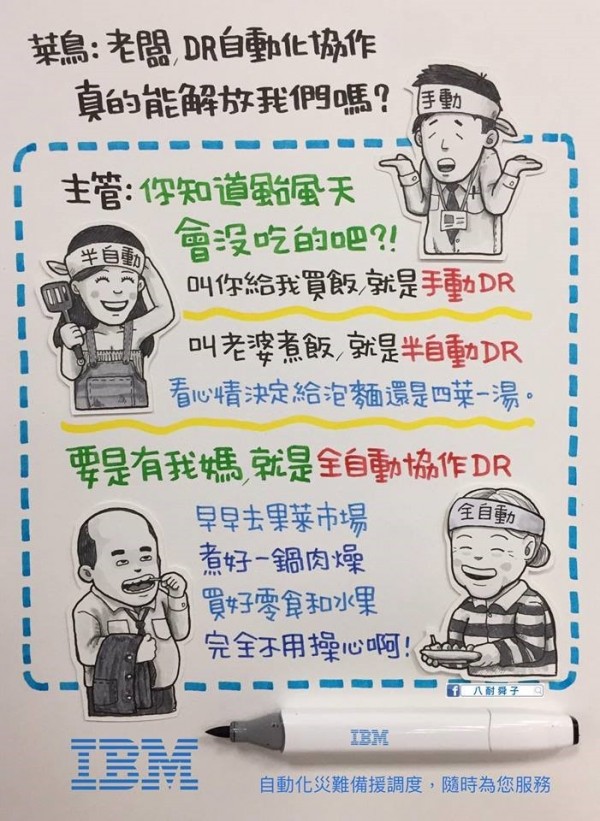 菜鳥：老闆，DR自動化協作
真的能解放我們嗎？
手動
主管：你知道颱風天
會沒吃的吧？！
半自動
叫你給我買飯，就是手動DR
叫老婆煮飯，就是半自動DR
看心情決定給泡麵還是四菜一湯。
要是有我媽，就是全自動協作DR
全自動
早早去果菜市場
煮好一鍋肉燥
買好零食和水果
完全不用操心啊！
f 八耐舜子
IBM
IBM
自動化災難備援調度，隨時為您服務